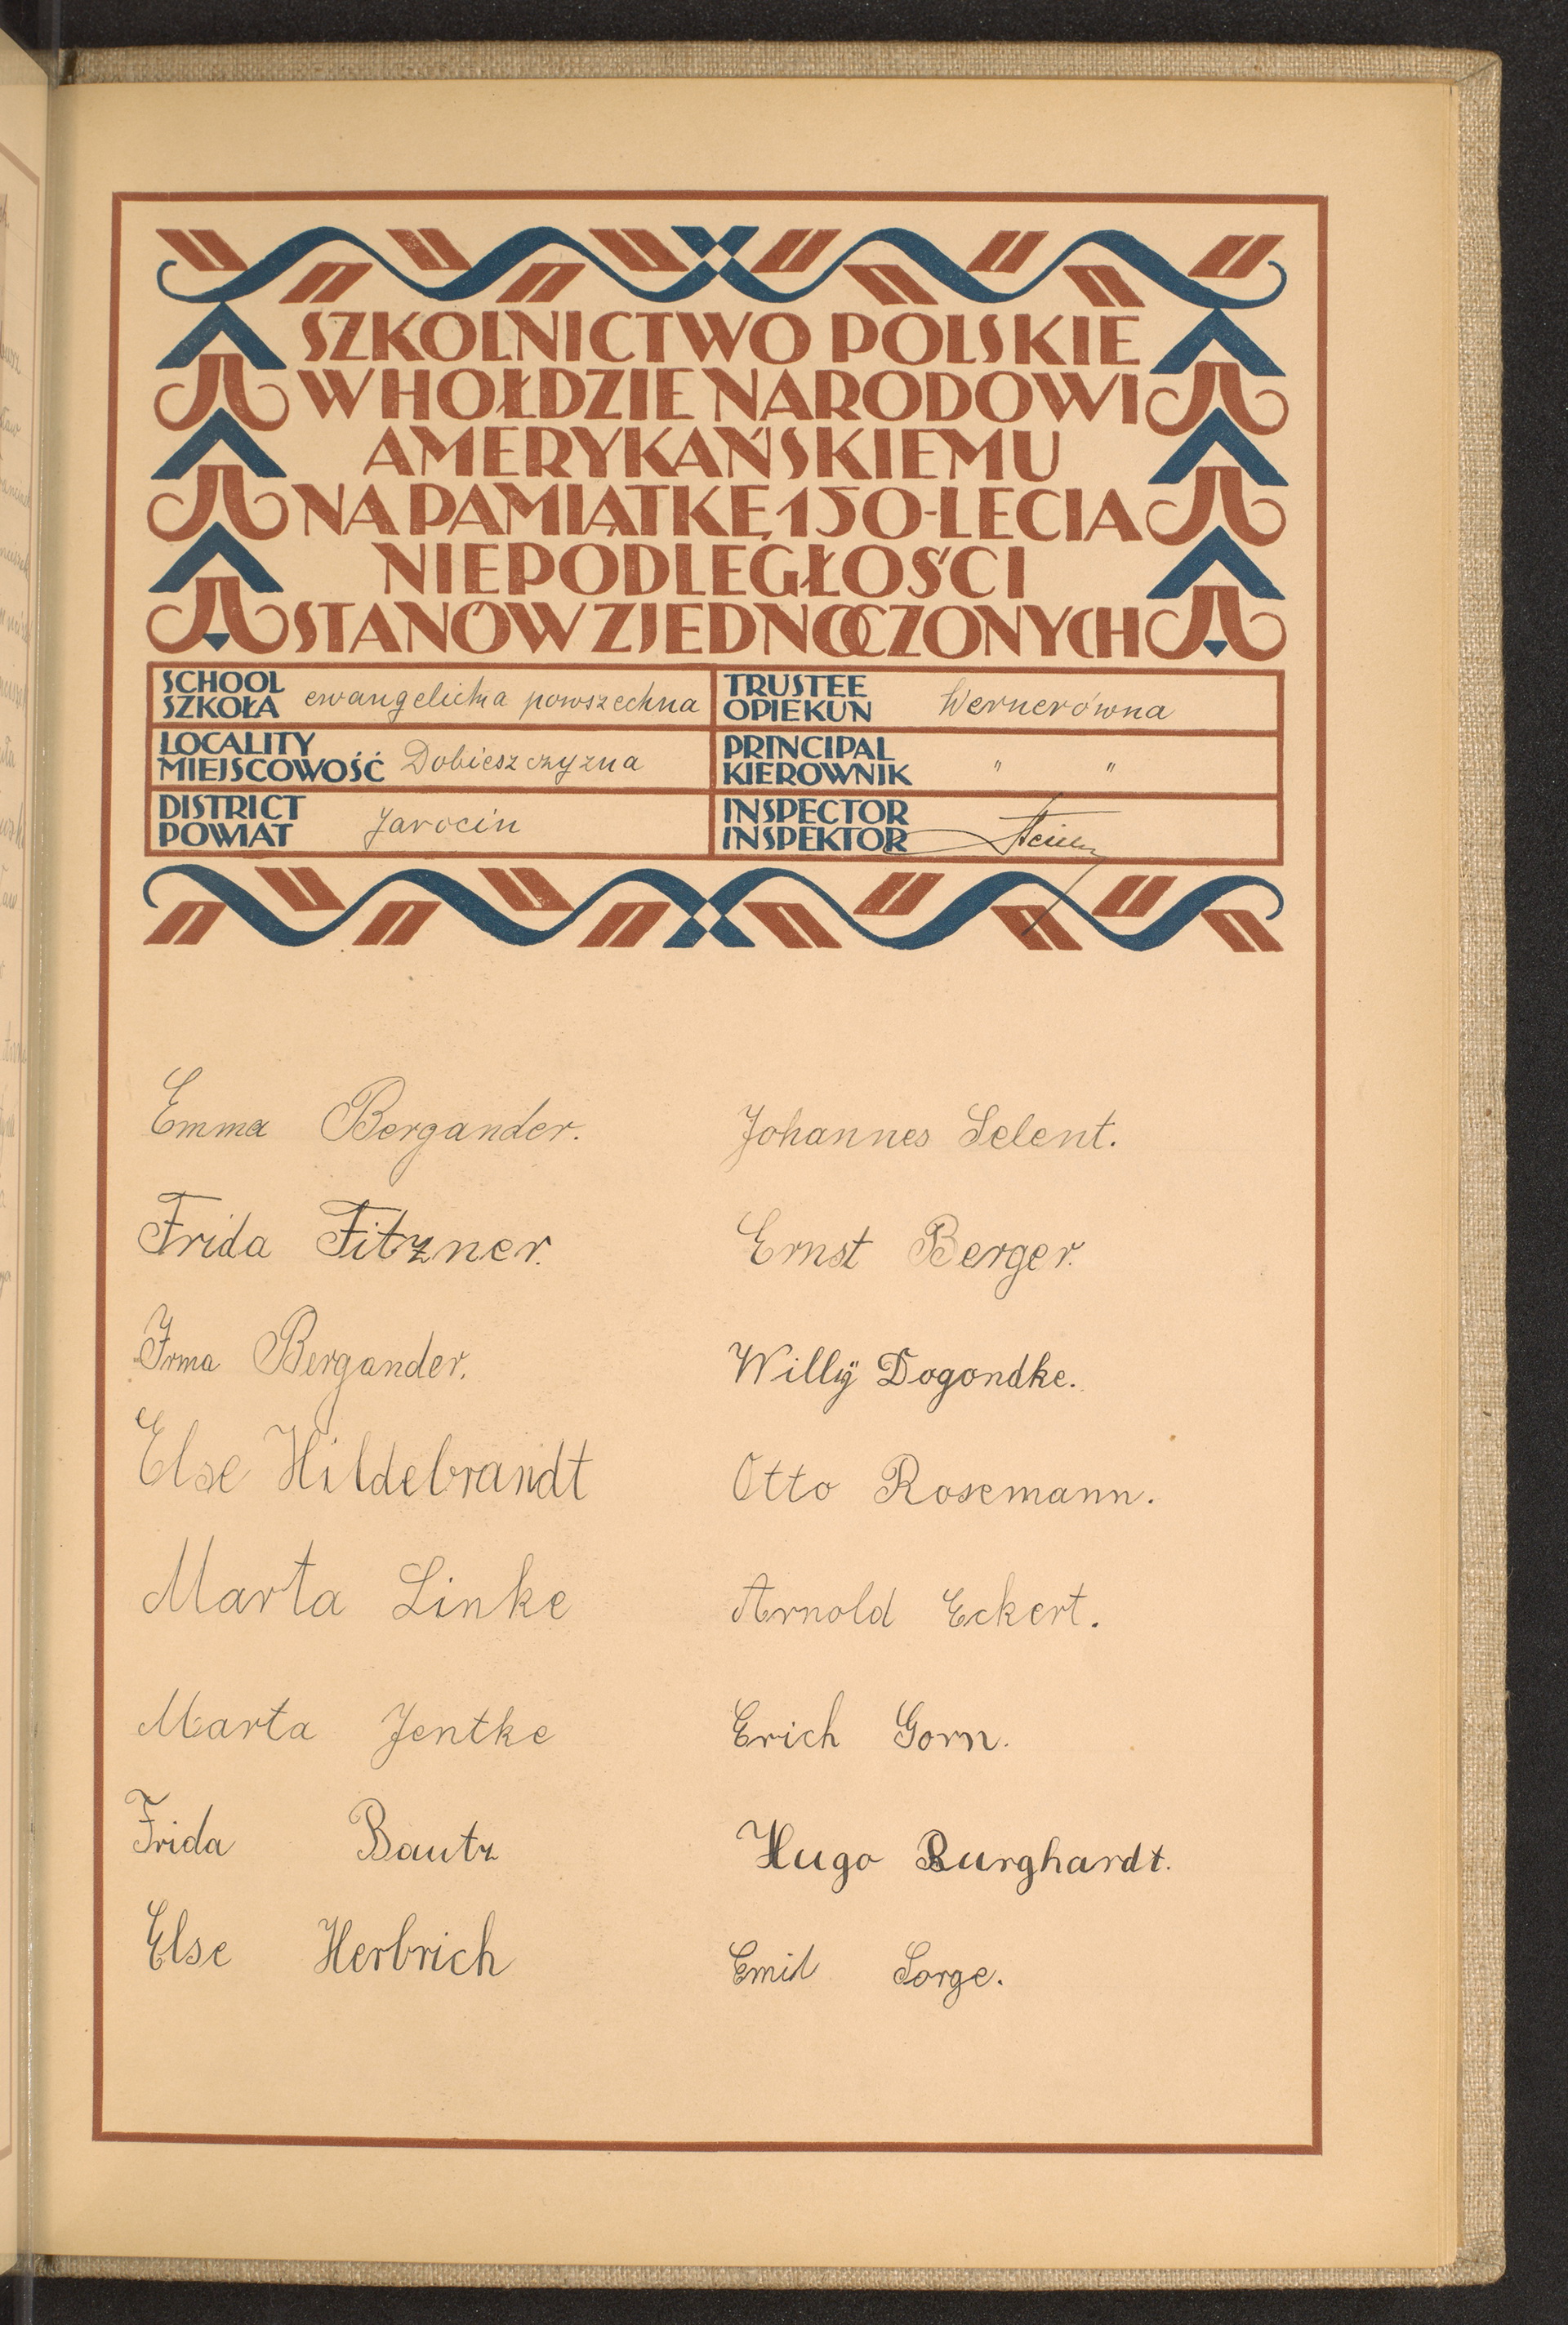 SZKOLNICTWO POLSKIE
W HOŁDZIE NARODOWI
AMERYKAŃSKIEMU
NA PAMIĄTKĘ 150-LECIA
NIEPODLEGŁOŚCI
STANÓW ZJEDNOCZONYCH
SCHOOL
SZKOŁA ewangelicka powszechna
TRUSTEE
OPIEKUN Wernerówna
LOCALITY
MIEJSCOWOŚĆ Dobieszczyzna
PRINCIPAL
KIEROWNIK " "
DISTRICT
POWIAT Jarocin
INSPECTOR
INSPEKTOR
Emma Bergander.
Frida Fitzner.
Irma Bergander.
Else Hildebrandt
Marta Linke
Marta Jentke
Frida Bautz
Else Herbrich
Johannes Selent.
Ernst Berger.
Willÿ Dogondke.
Otto Rosemann.
Arnold Eckert.
Erich Gorn.
Hugo Burghardt.
Emil Sorge.